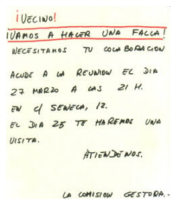 ¡VECINO!
¡VAMOS A HACER UNA FALLA!
NECESITAMOS TU COLABORACION
ACUDE A LA REUNION EL DIA
27 MARZO A LAS 21 H.
EN C/ SENECA, 12.
EL DIA 25 TE HAREMOS UNA
VISITA.
ATIENDENOS.
LA COMISION GESTORA.